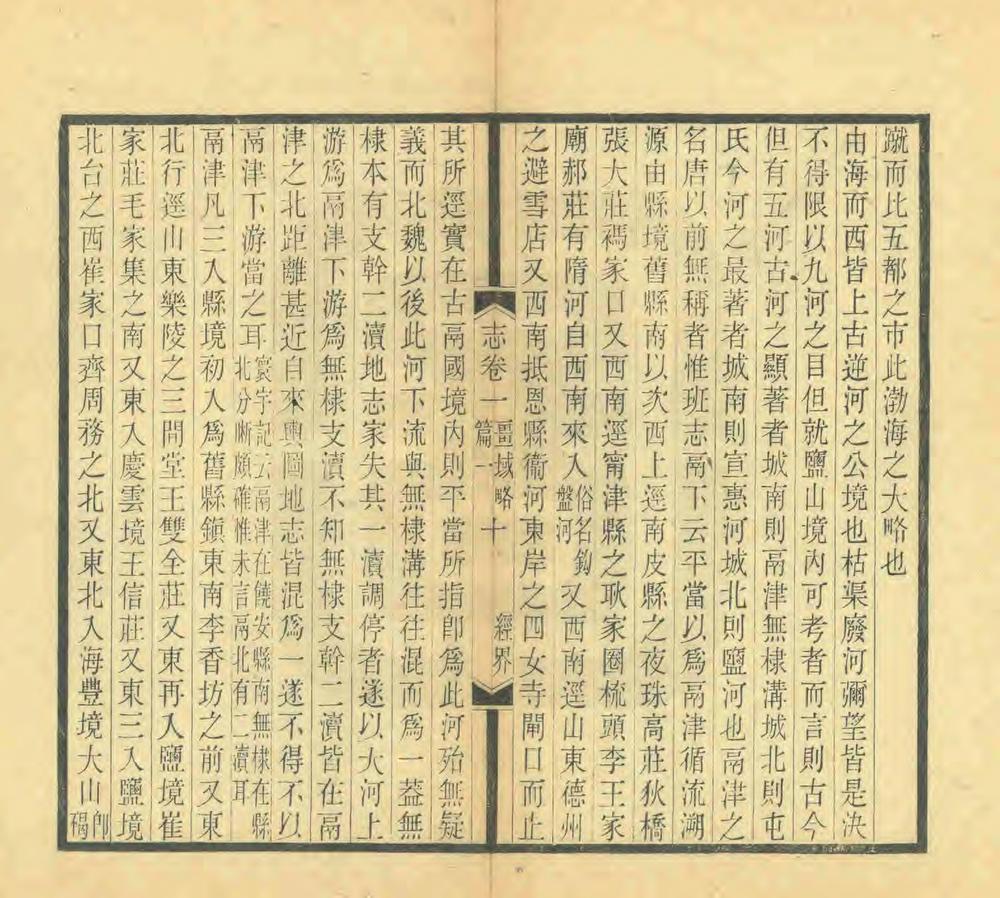 蹴而比五都之市此渤海之大略也
由海而西皆上古逆河之公境也枯渠廢河彌望皆是決
不得限以九河之目但就鹽山境內可考者而言則古今
但有五河古河之顯著者城南則鬲津無棣溝城北則屯
氏今河之最著者城南則宣惠河城北則鹽河也鬲津之
名唐以前無稱者惟班志鬲下云平當以爲鬲津循流溯
源由縣境舊縣南以次西上逕南皮縣之夜珠高莊狄橋
張大莊禡家口又西南逕甯津縣之耿家圈梳頭李王家
廟郝莊有隋河自西南來入俗名鉤盤河又西南逕山東德州
之避雪店又西南抵恩縣衞河東岸之四女寺閘口而止
志卷一 疆域略篇一 十 經界
其所逕實在古鬲國境內則平當所指卽爲此河殆無疑
義而北魏以後此河下流與無棣溝往往混而爲一蓋無
棣本有支幹二瀆地志家失其一瀆調停者遂以大河上
游爲鬲津下游爲無棣支瀆不知無棣支幹二瀆皆在鬲
津之北距離甚近自來輿圖地志皆混爲一遂不得不以
鬲津下游當之耳寰宇記云鬲津在饒安縣南無棣在縣北分晰頗確惟未言鬲北有二瀆耳
鬲津凡三入縣境初入爲舊縣鎭東南李香坊之前又東
北行逕山東樂陵之三間堂王雙全莊又東再入鹽境崔
家莊毛家集之南又東入慶雲境王信莊又東三入鹽境
北台之西崔家口齊周務之北又東北入海豐境大山卽碣